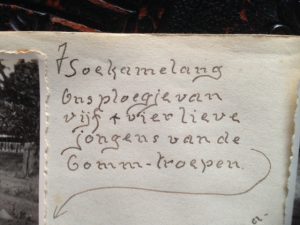 7 Soekamelang
Ons ploegje van
vijf + vier lieve
jongens van de
Comm-troepen